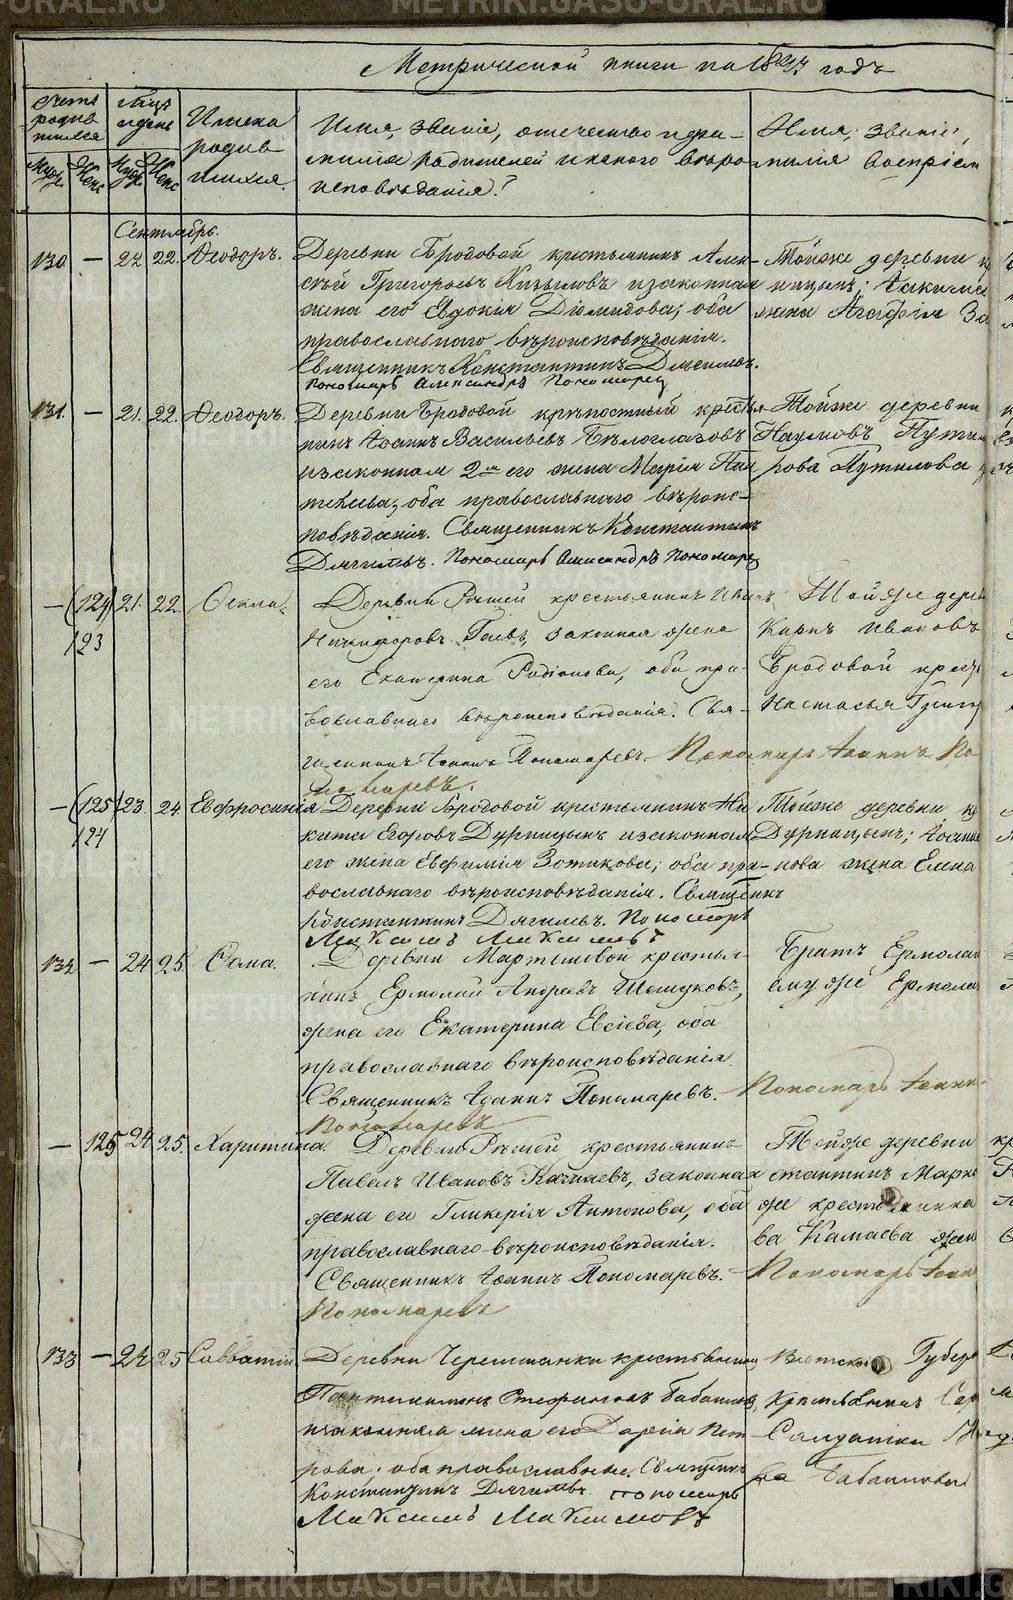 METRIKI.GASO-URAL.RU
Метрической книги на годъ
Счетъ родив шихся
Муж. Женс
Мцъ и день
Имена родив шихся.
Имя, званіе, отечество и фа-
милія родителей и какого вѣро-
исповѣданія?
Имя, званіе,
милія воспріем
Сентябрь.
130 — 22. 22. Ѳеодоръ.
Деревни Бродовой крестьянинъ Алек-
сѣй Григорьевъ и законная
жена его Евдокія Діомидова; оба
православнаго вѣроисповѣданія.
Священникъ Константинъ Дягилевъ.
Пономарь Александръ Пономарев
Тойже деревни
жена Агафія
131. — 21. 22. Ѳеодоръ.
Деревни Бродовой крѣпостный крестья-
нинъ Іоаннъ Васильевъ Бѣлоглазовъ
и законная 2я его жена Марія
оба православнаго вѣроис-
повѣданія. Священникъ Константинъ
Дягилевъ. Пономарь Александръ Пономарев
Тойже деревни
Наумовъ
рова Путилова
— (124) 21. 22. Ѳекла.
123
Деревни Рѣшей крестьянинъ Иванъ
Никифоровъ Гаевъ, законная жена
его Екатерина Родіонова, оба пра-
вославнаго вѣроисповѣданія. Свя-
щенникъ Іоаннъ Пономаревъ. Пономарь Іоаннъ По-
номаревъ.
Той же дерев
Карпъ Ивановъ
Бродовой крест
Настасья Григ
— (125) 23. 24. Евфросинія
124
Деревни Бродовой крестьянинъ Ни
кита Егоровъ Дурницынъ и законная
его жена Евфимія Зотикова; оба пра-
вославнаго вѣроисповѣданія. Священникъ
Константинъ Дягилевъ. Пономарь
Максимъ Максимовъ
Тойже деревни
Дурницынъ; Іоанна
нова жена Елена
132 — 24 25. Ѳома.
Деревни Мартышевой крестья-
нинъ Ермолай Андреевъ Шошуковъ,
жена его Екатерина Евсіева, оба
православнаго вѣроисповѣданія
Священникъ Іоаннъ Пономаревъ. Пономарь Іоанн
Пономаревъ
Братъ Ермолая
ему же Ермола
— 125 24 25. Харитина.
Деревни Рѣшей крестьянинъ
Павелъ Ивановъ Камаевъ, законная
жена его Гликерія Антонова, оба
православнаго вѣроисповѣданія.
Священникъ Іоаннъ Пономаревъ. Пономарь Іоанн
Пономаревъ
Той же деревни
стантинъ Марко
же крестьянина
ва Камаева жен
133 — 24 25 Савватій
Деревни Черемшанки крестьянинъ
Пантелимонъ Стефановъ
и законная жена его Дарья Пет
рова. оба православные. Священникъ
Константинъ Дягилевъ. пономарь
Максимъ Максимовъ
Вятской Губерн
Крестьянинъ
Салдатки
ва Бабаилова